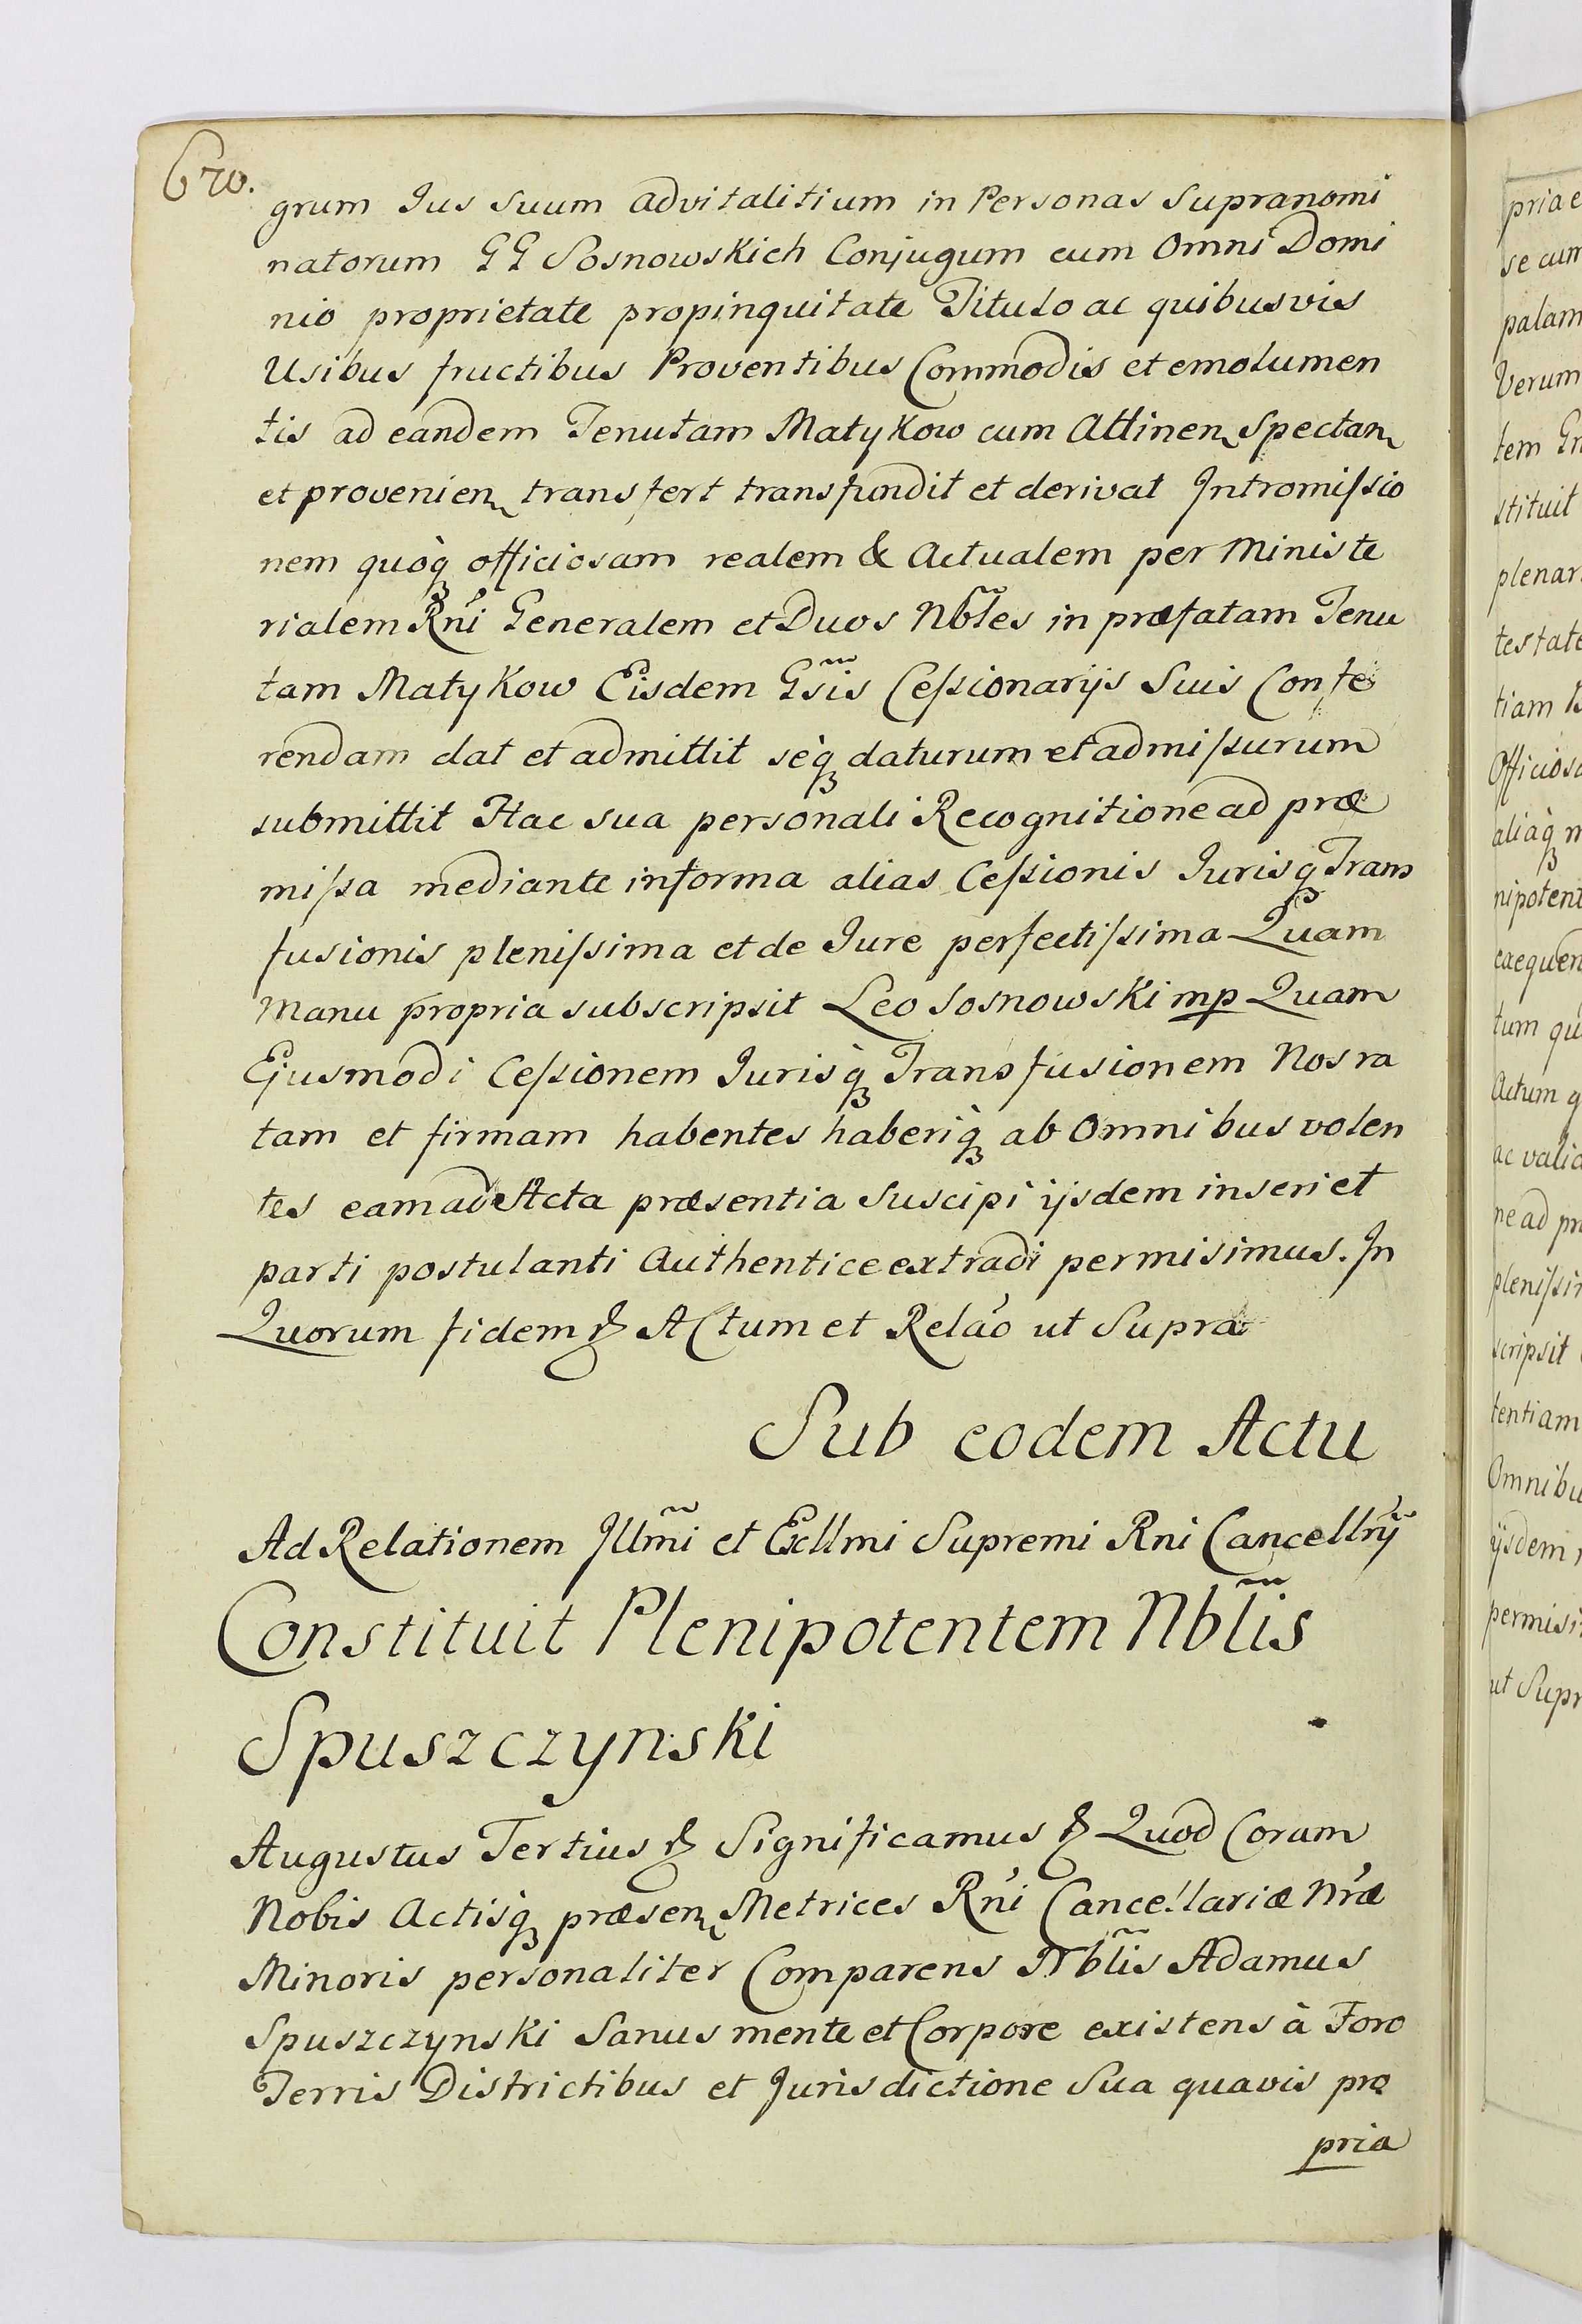 670.
grum Jus Suum advitalitium in Personas Supranomi
natorum GG Sosnowskich Conjugum cum Omni Domi
nio proprietate propinquitate Titulo ac quibusvis
Usibus fructibus Proventibus Commodis et emolumen
tis ad eandem Tenutam Matykow cum Attinen Spectan
et provenien transfert transfundit et derivat Intromiſsio
nem quòq officiosam realem & Actualem per Ministe
rialem Rńi Generalem et Duos Nbl̃es in præfatam Tenu
tam Matykow Eisdem Gs̃is Ceſsionarijs Suis Confe
rendam dat et admittit sèq daturum et admiſsurum
submittit Hac sua personali Recognitione ad præ
miſsa mediante in forma alias Ceſsionis Jurisq Trans
fusionis pleniſsima et de Jure perfectiſsima Quam
Manu propria subscripsit Leo Sosnowski mp Quam
Ejusmodi Ceſsionem Jurisq̀ Transfusionem Nos ra
tam et firmam habentes haberiq̀ ab Omnibus volen
tes eam ad Acta præsentia Suscipi ijsdem inseri et
parti postulanti Authentice extradi permisimus. In
Quorum fidem & Actum et Reláo ut Supra
Sub eodem Actu
Ad Relationem Jllm̃i et Excllmi Supremi Rni Cancellrij
Constituit Plenipotentem Nbl̃is
Spuszczynski
Augustus Tertius & Significamus & Quod Coram
Nobis Actisq̀ præsen Metrices Rńi Cancellariæ Nŕæ
Minoris personaliter Comparens Nbl̃is Adamus
Spuszczynski Sanus mente et Corpore existens à Foro
Terris Districtibus et Jurisdictione Sua quavis pro
pria
priae
se cum
palam
Verum
tem
stituit
plenar
testate
tiam
Officiosa
aliaq̀
nipotent
eaequen
tum qu
Actum q
ac valid
ne ad pr
pleniſsi
scripsit
tentiam
Omnibu
ijsdem
permisi
ut Supr